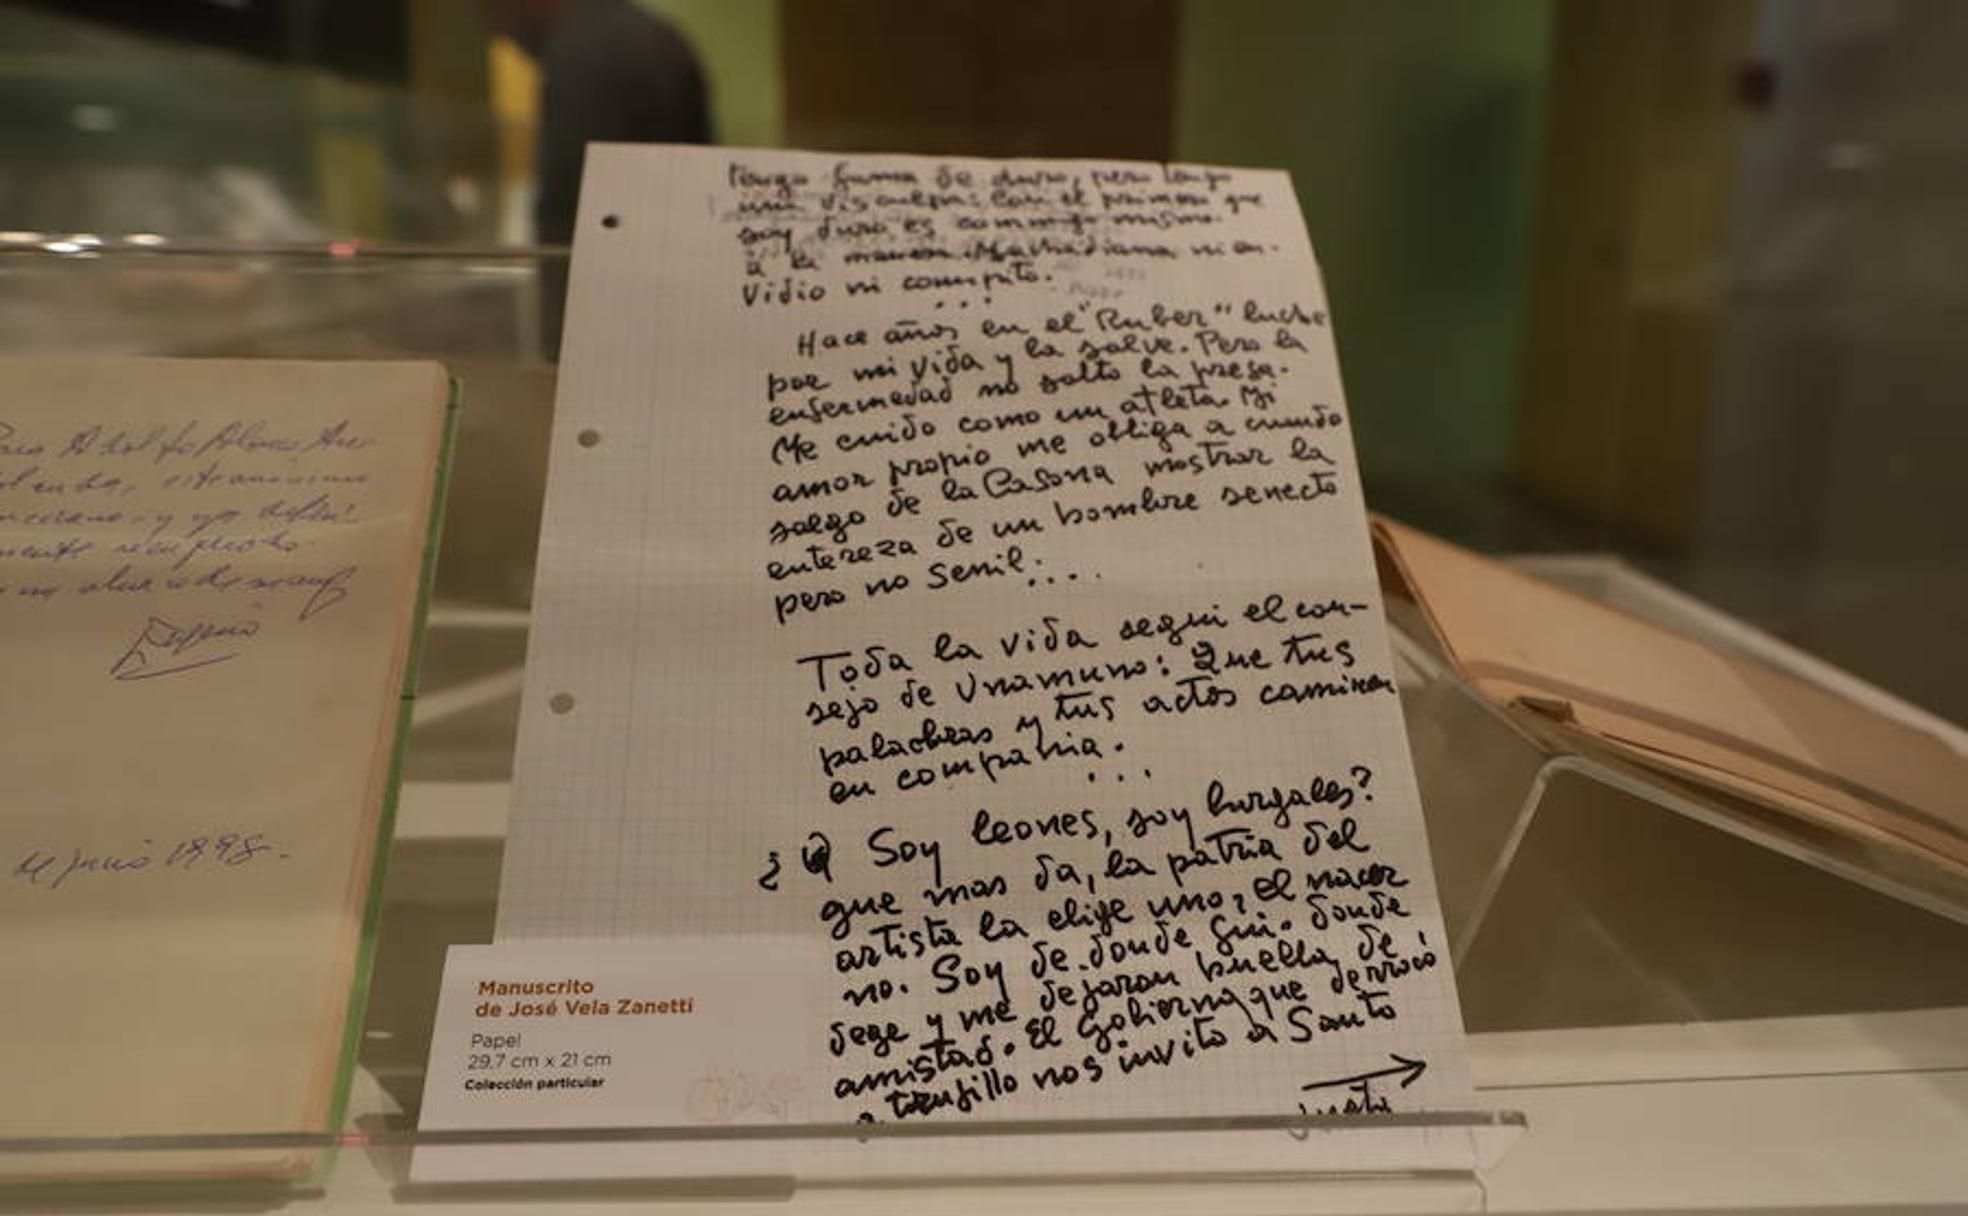 Para Adolfo Alonso Are-
y yo
junio 1998.
tengo fama de duro, pero tengo
una disculpa: Con el primero que
soy duro es conmigo mismo.
a la manera Machadiana ni en-
vidio ni compito.
...
Hace años en el "Ruber" luche
por mi vida y la salve. Pero la
enfermedad no solto la presa.
Me cuido como un atleta. Mi
amor propio me obliga a cuando
salgo de la Casona mostrar la
entereza de un hombre senecto
pero no senil:...
Toda la vida segui el con-
sejo de Unamuno: Que tus
palabras y tus actos caminen
en compañia.
...
¿ Soy leones, soy burgales?
que mas da, la patria del
artista la elige uno, el nacer
no. Soy de donde fui. donde
dege y me dejaron huella de
amistad. El Gobierno que derrocó
a trujillo nos invito a Santo
→
vuelta
Manuscrito
de José Vela Zanetti
Papel
29,7 cm x 21 cm
Colección particular